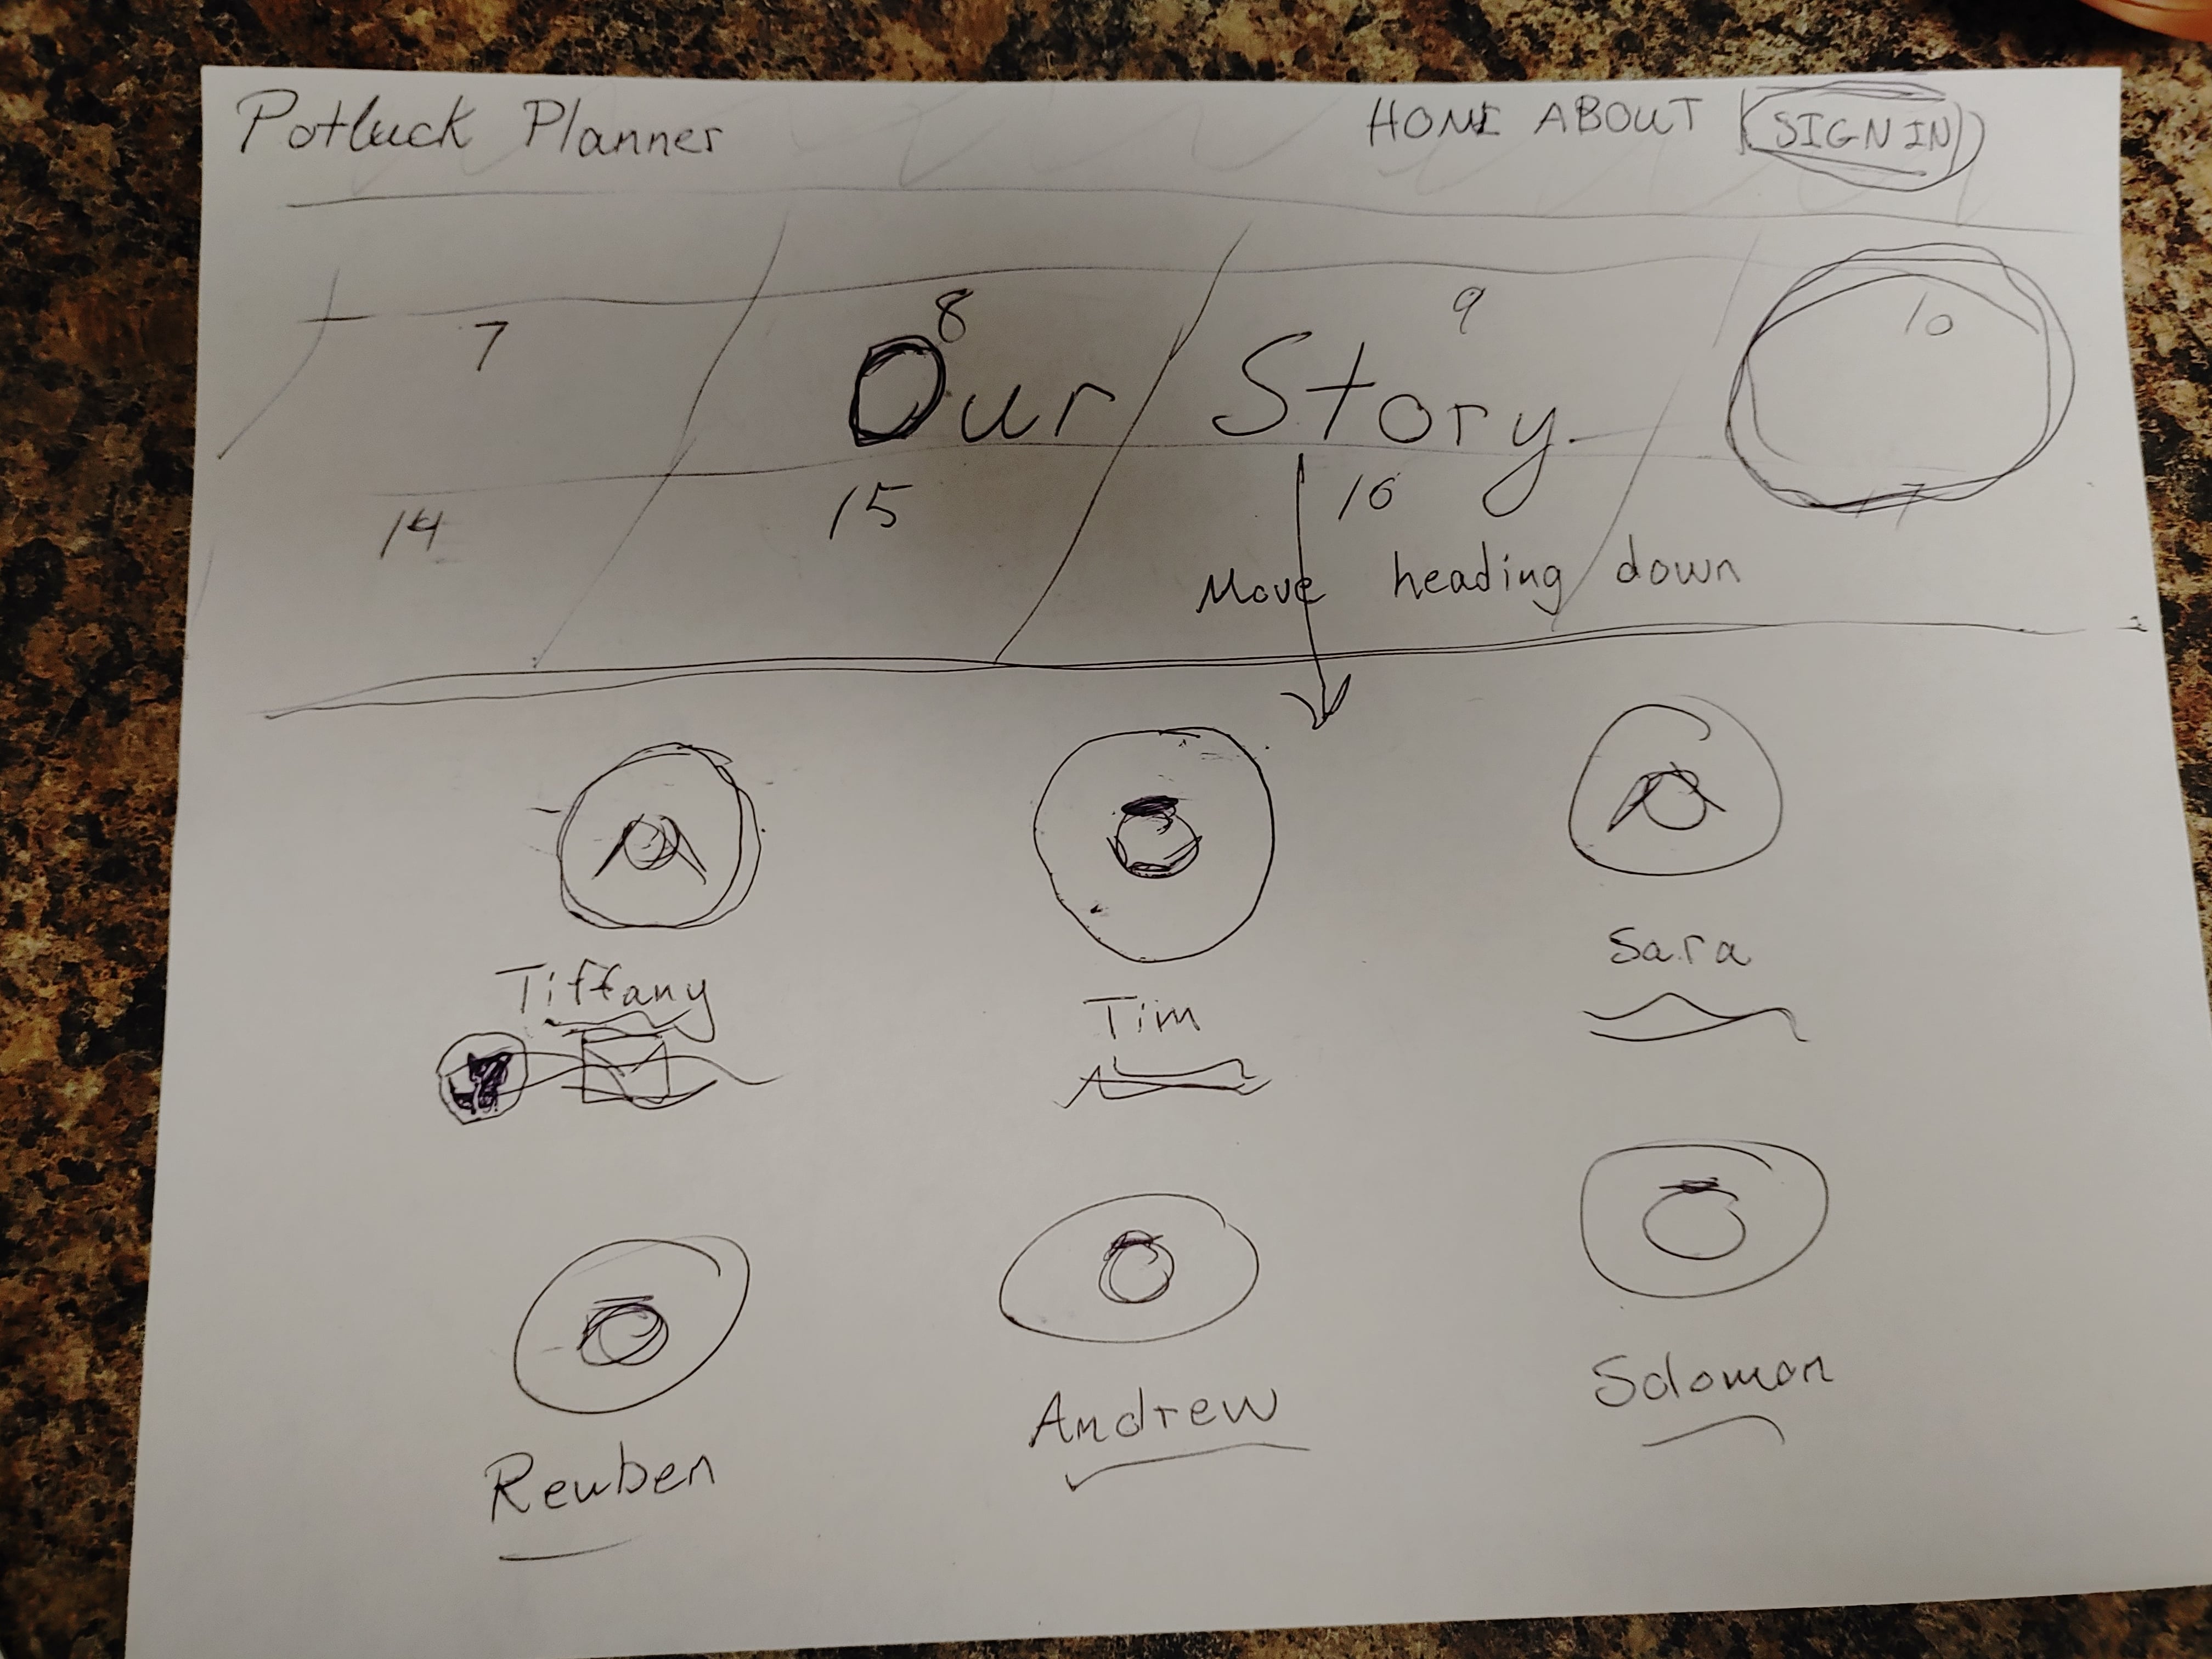 Potluck Planner HOME ABOUT SIGN IN
7 8 9 10
Our Story
14 15 16 17
Move heading down
Tiffany Tim Sara
Reuben Andrew Solomon